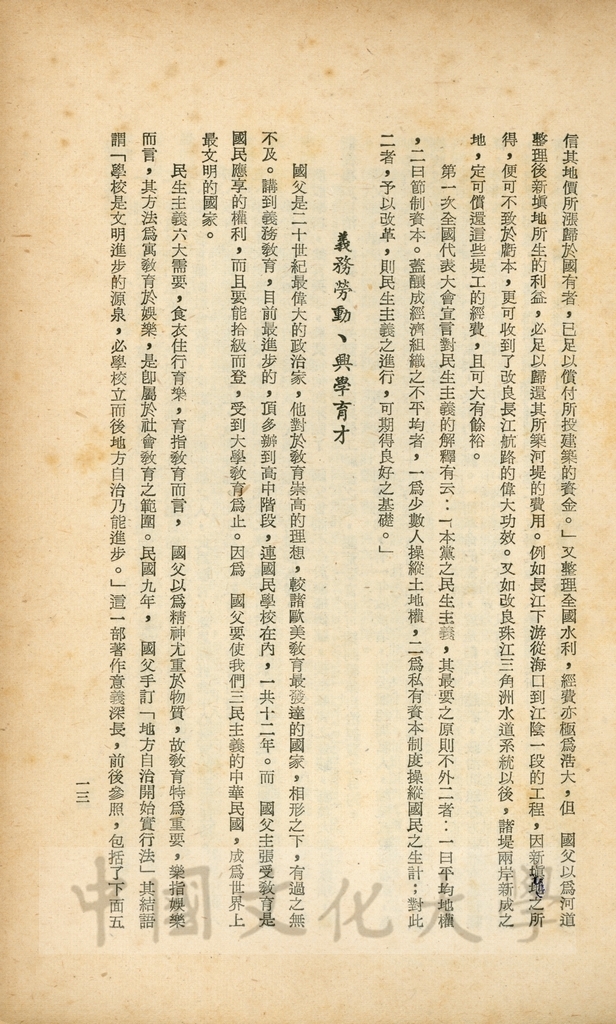 信其地價所漲歸於國有者，已足以償付所投建築的資金。」又整理全國水利，經費亦極爲浩大，但　國父以爲河道
整理後新塡地所生的利益，必足以歸還其所築河堤的費用。例如長江下游從海口到江陰一段的工程，因新塡地之所
得，便可不致於虧本，更可收到了改良長江航路的偉大功效。又如改良珠江三角洲水道系統以後，諸堤兩岸新成之
地，定可償還這些堤工的經費，且可大有餘裕。
第一次全國代表大會宣言對民生主義的解釋有云：「本黨之民生主義，其最要之原則不外二者：一曰平均地權
，二曰節制資本。蓋釀成經濟組織之不平均者，一爲少數人操縱土地權，二爲私有資本制度操縱國民之生計；對此
二者，予以改革，則民生主義之進行，可期得良好之基礎。」
義務勞動、興學育才
國父是二十世紀最偉大的政治家，他對於教育崇高的理想，較諸歐美教育最發達的國家，相形之下，有過之無
不及。講到義務教育，目前最進步的，頂多辦到高中階段，連國民學校在內，一共十二年。而　國父主張受教育是
國民應享的權利，而且要能拾級而登，受到大學教育爲止。因爲　國父要使我們三民主義的中華民國，成爲世界上
最文明的國家。
民生主義六大需要，食衣住行育樂，育指教育而言，　國父以爲精神尤重於物質，故教育特爲重要，樂指娛樂
而言，其方法爲寓教育於娛樂，是卽屬於社會教育之範圍。民國九年，　國父手訂「地方自治開始實行法」其結語
謂「學校是文明進步的源泉，必學校立而後地方自治乃能進步。」這一部著作意義深長，前後參照，包括了下面五
一三
中國文化大學